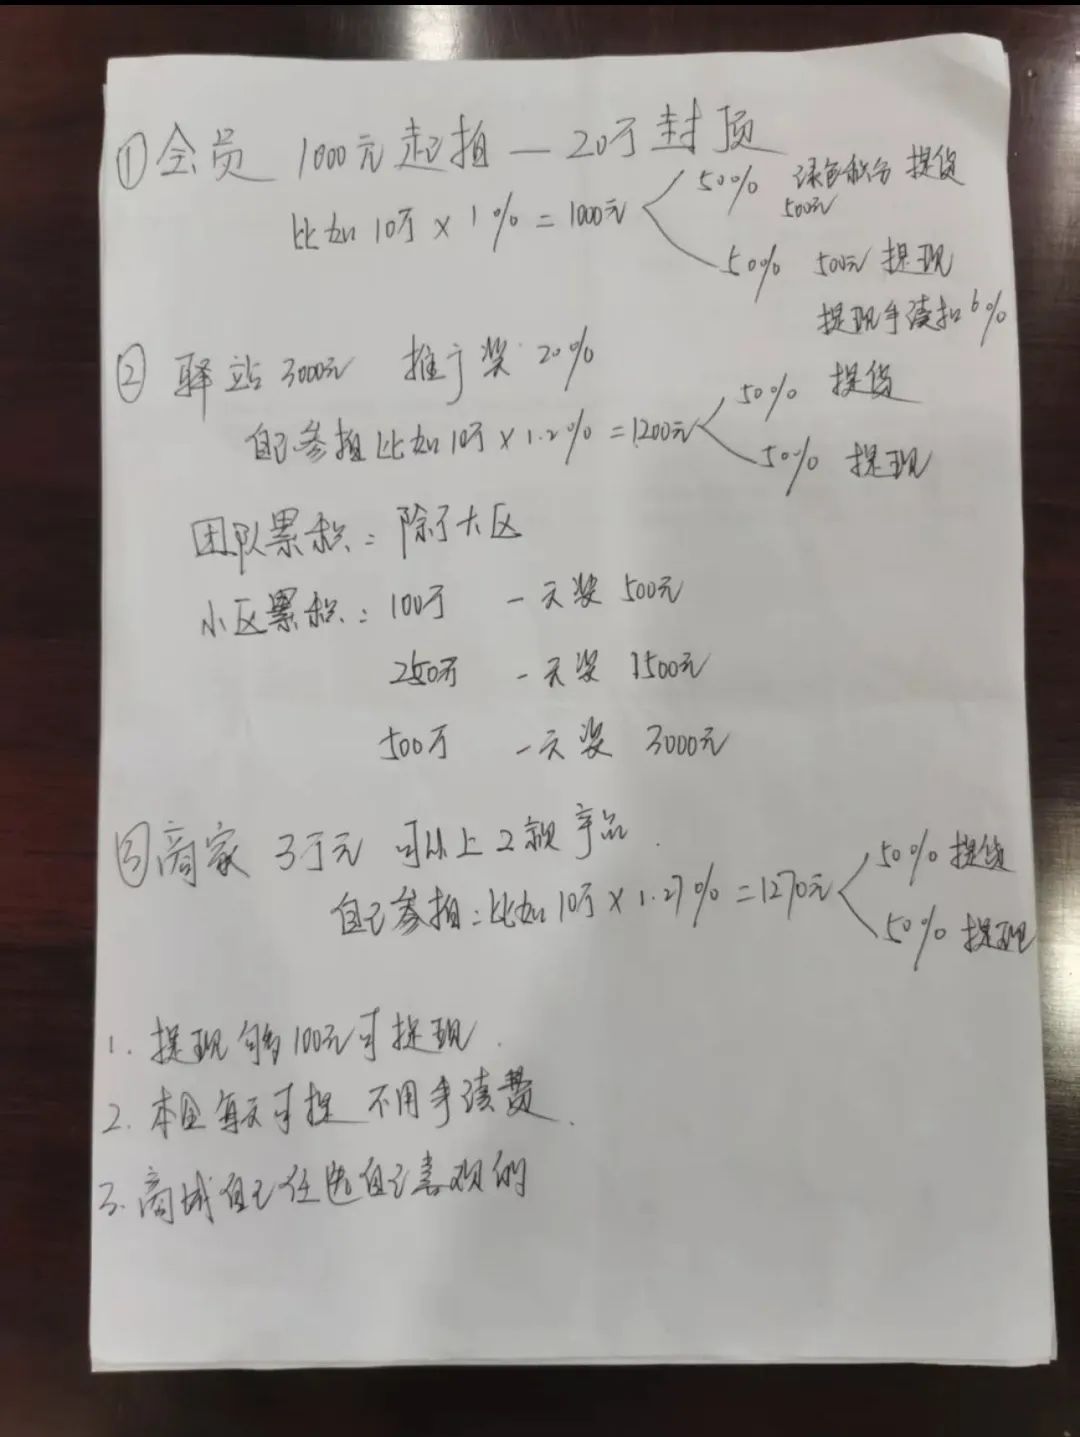 ①会员 1000元起拍—20万封顶
比如10万×1%=1000元
50% 绿色积分 提货
500元
50% 500元 提现
提现手续扣6%
②驿站3000元 推广奖20%
自己参拍比如10万×1.2%=1200元
50% 提货
50% 提现
团队累积:除了大区
小区累积:100万 一天奖500元
250万 一天奖1500元
500万 一天奖3000元
③商家 3万元 可以上2款产品.
自己参拍:比如10万×1.27%=1270元
50%提货
50%提现
1. 提现够100元可提现.
2. 本金每天可提 不用手续费.
3. 商城自己任选自己喜欢的